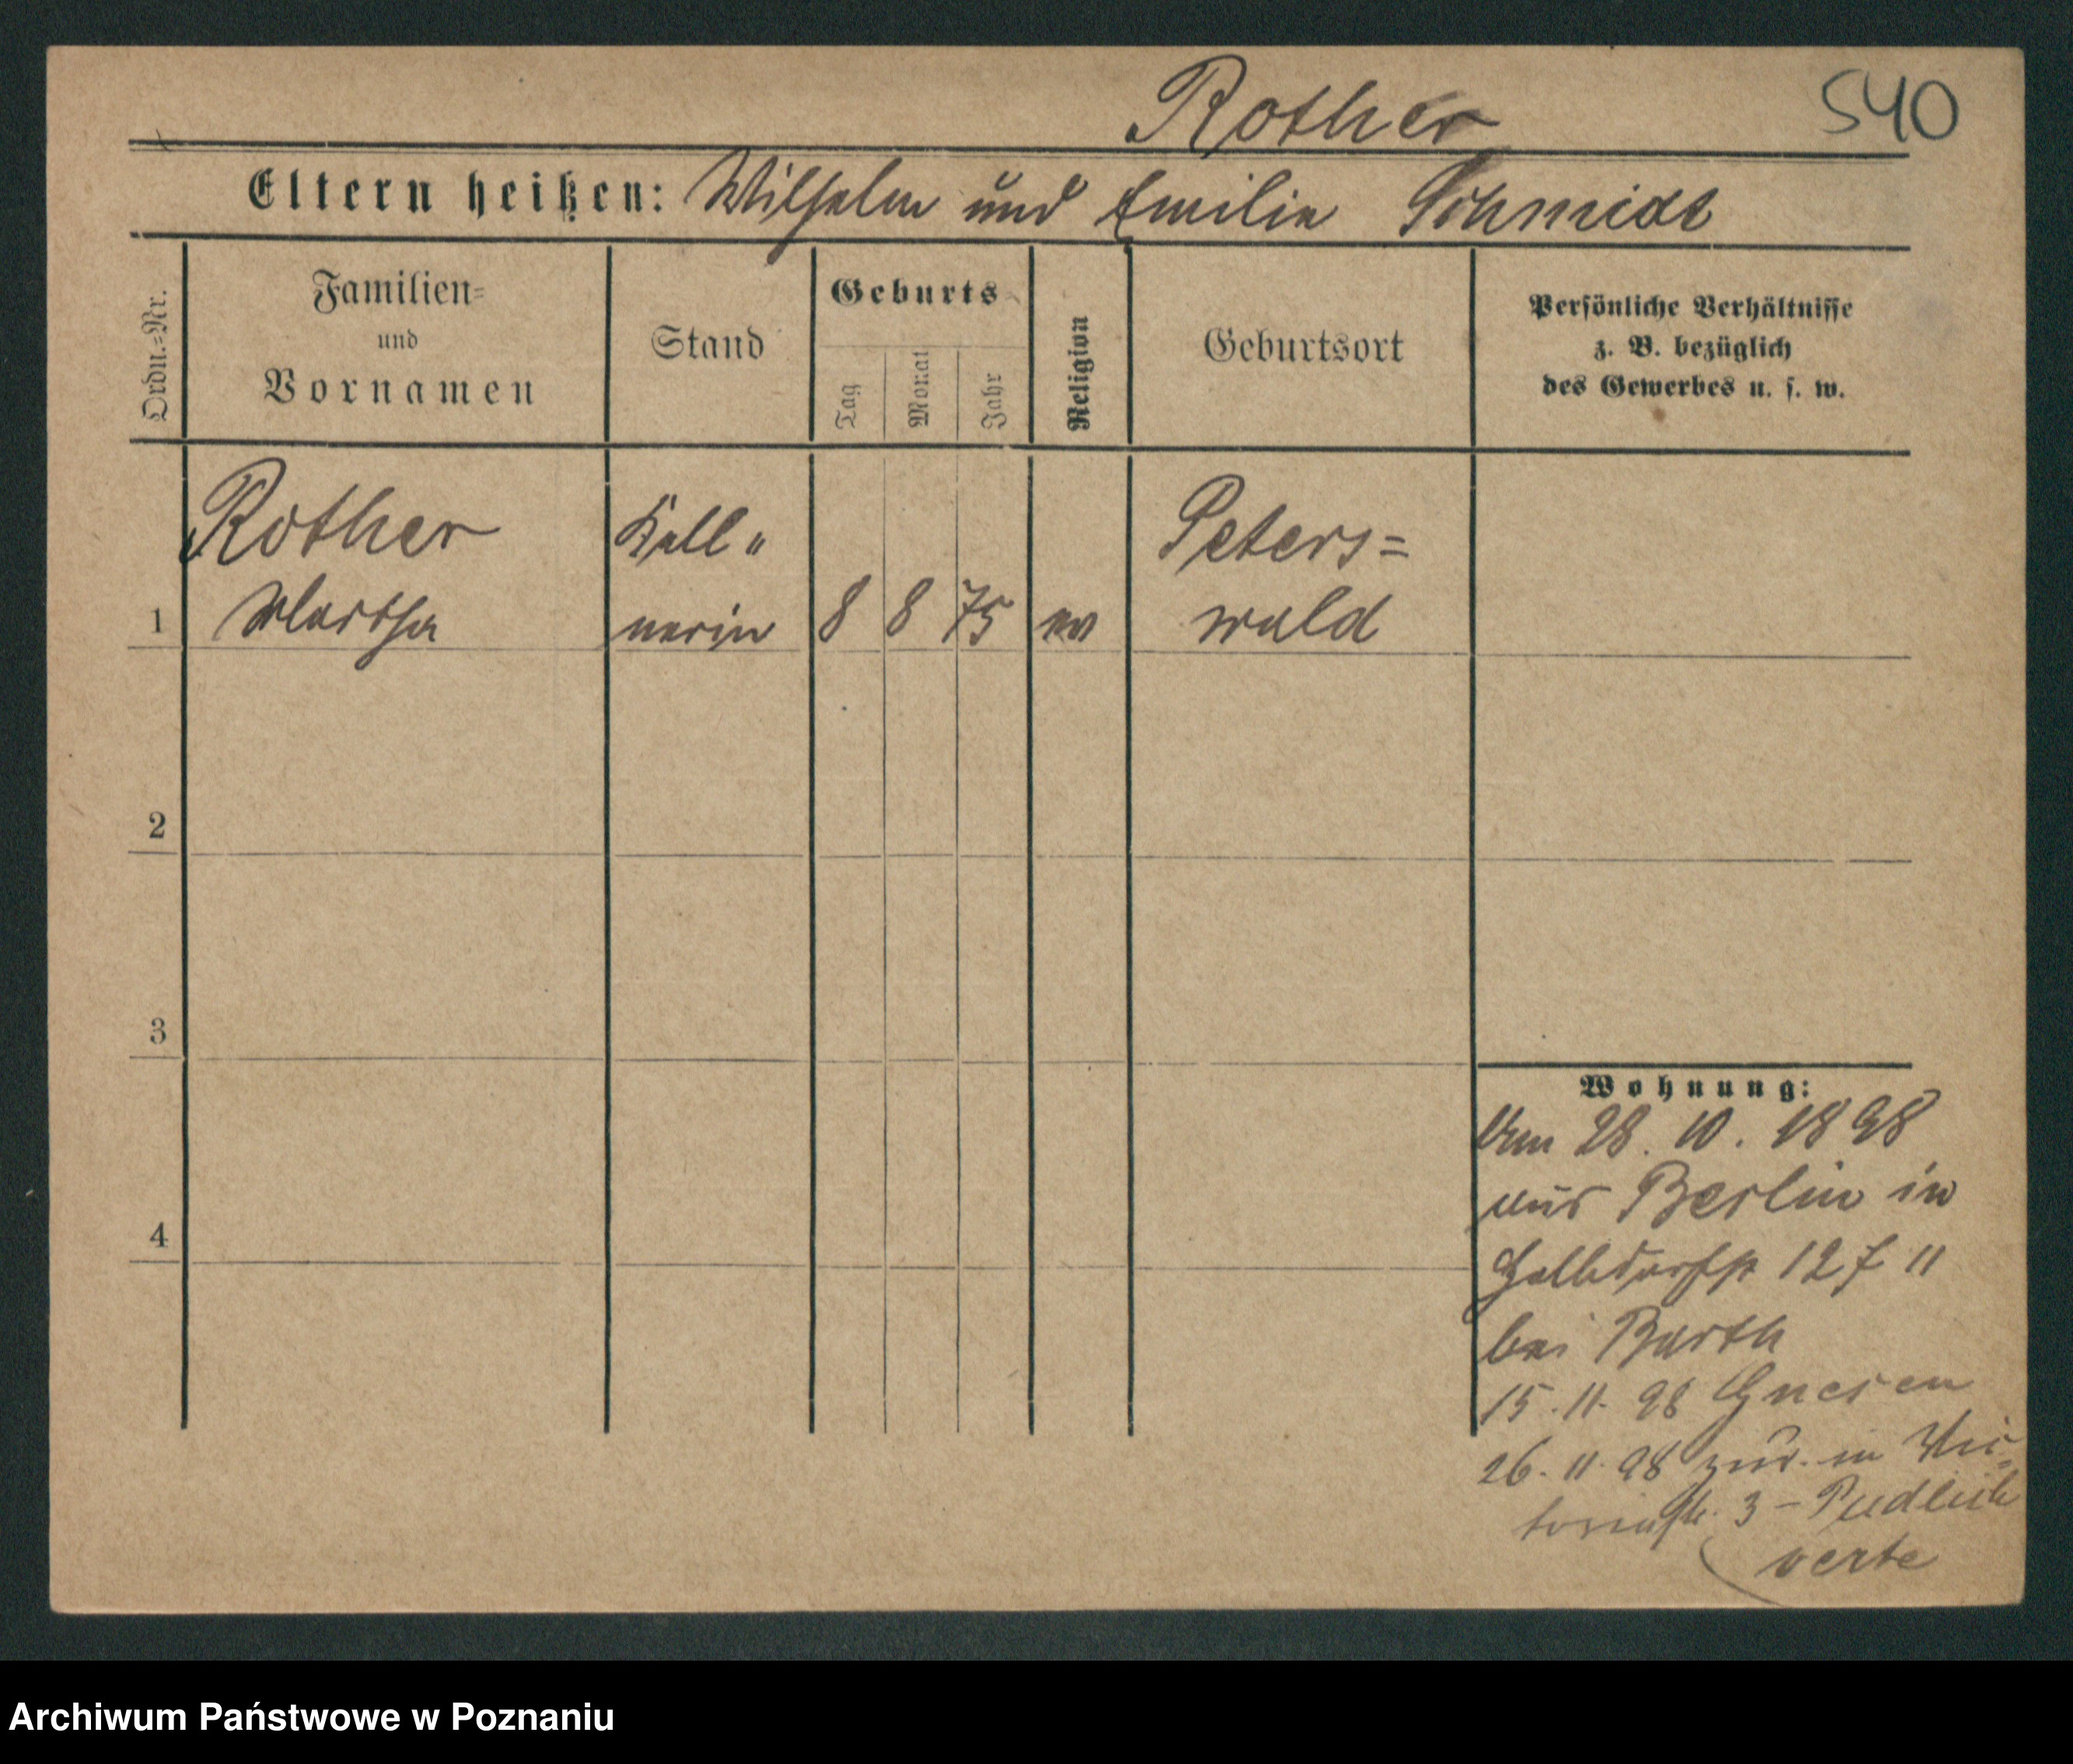 Rother
540
Eltern heißen: Wilhelm und Emilie Schmidt
Ordn.-Nr.
Familien-
und
Vornamen
Stand
Geburts
Tag
Monat
Jahr
Religion
Geburtsort
Persönliche Verhältnisse
z. B. bezüglich
des Gewerbes u. s. w.
Rother
Kell"
Peters=
1 Martha nerin 8 8 75 ev wald
2
3
4
Wohnung:
Vom 28. 10. 1898
aus Berlin in
127 II
bei Barth
15. 11. 98 Gnesen
26. 11. 98 zur. in Vic=
toriastr. 3 –
verte
Archiwum Państwowe w Poznaniu